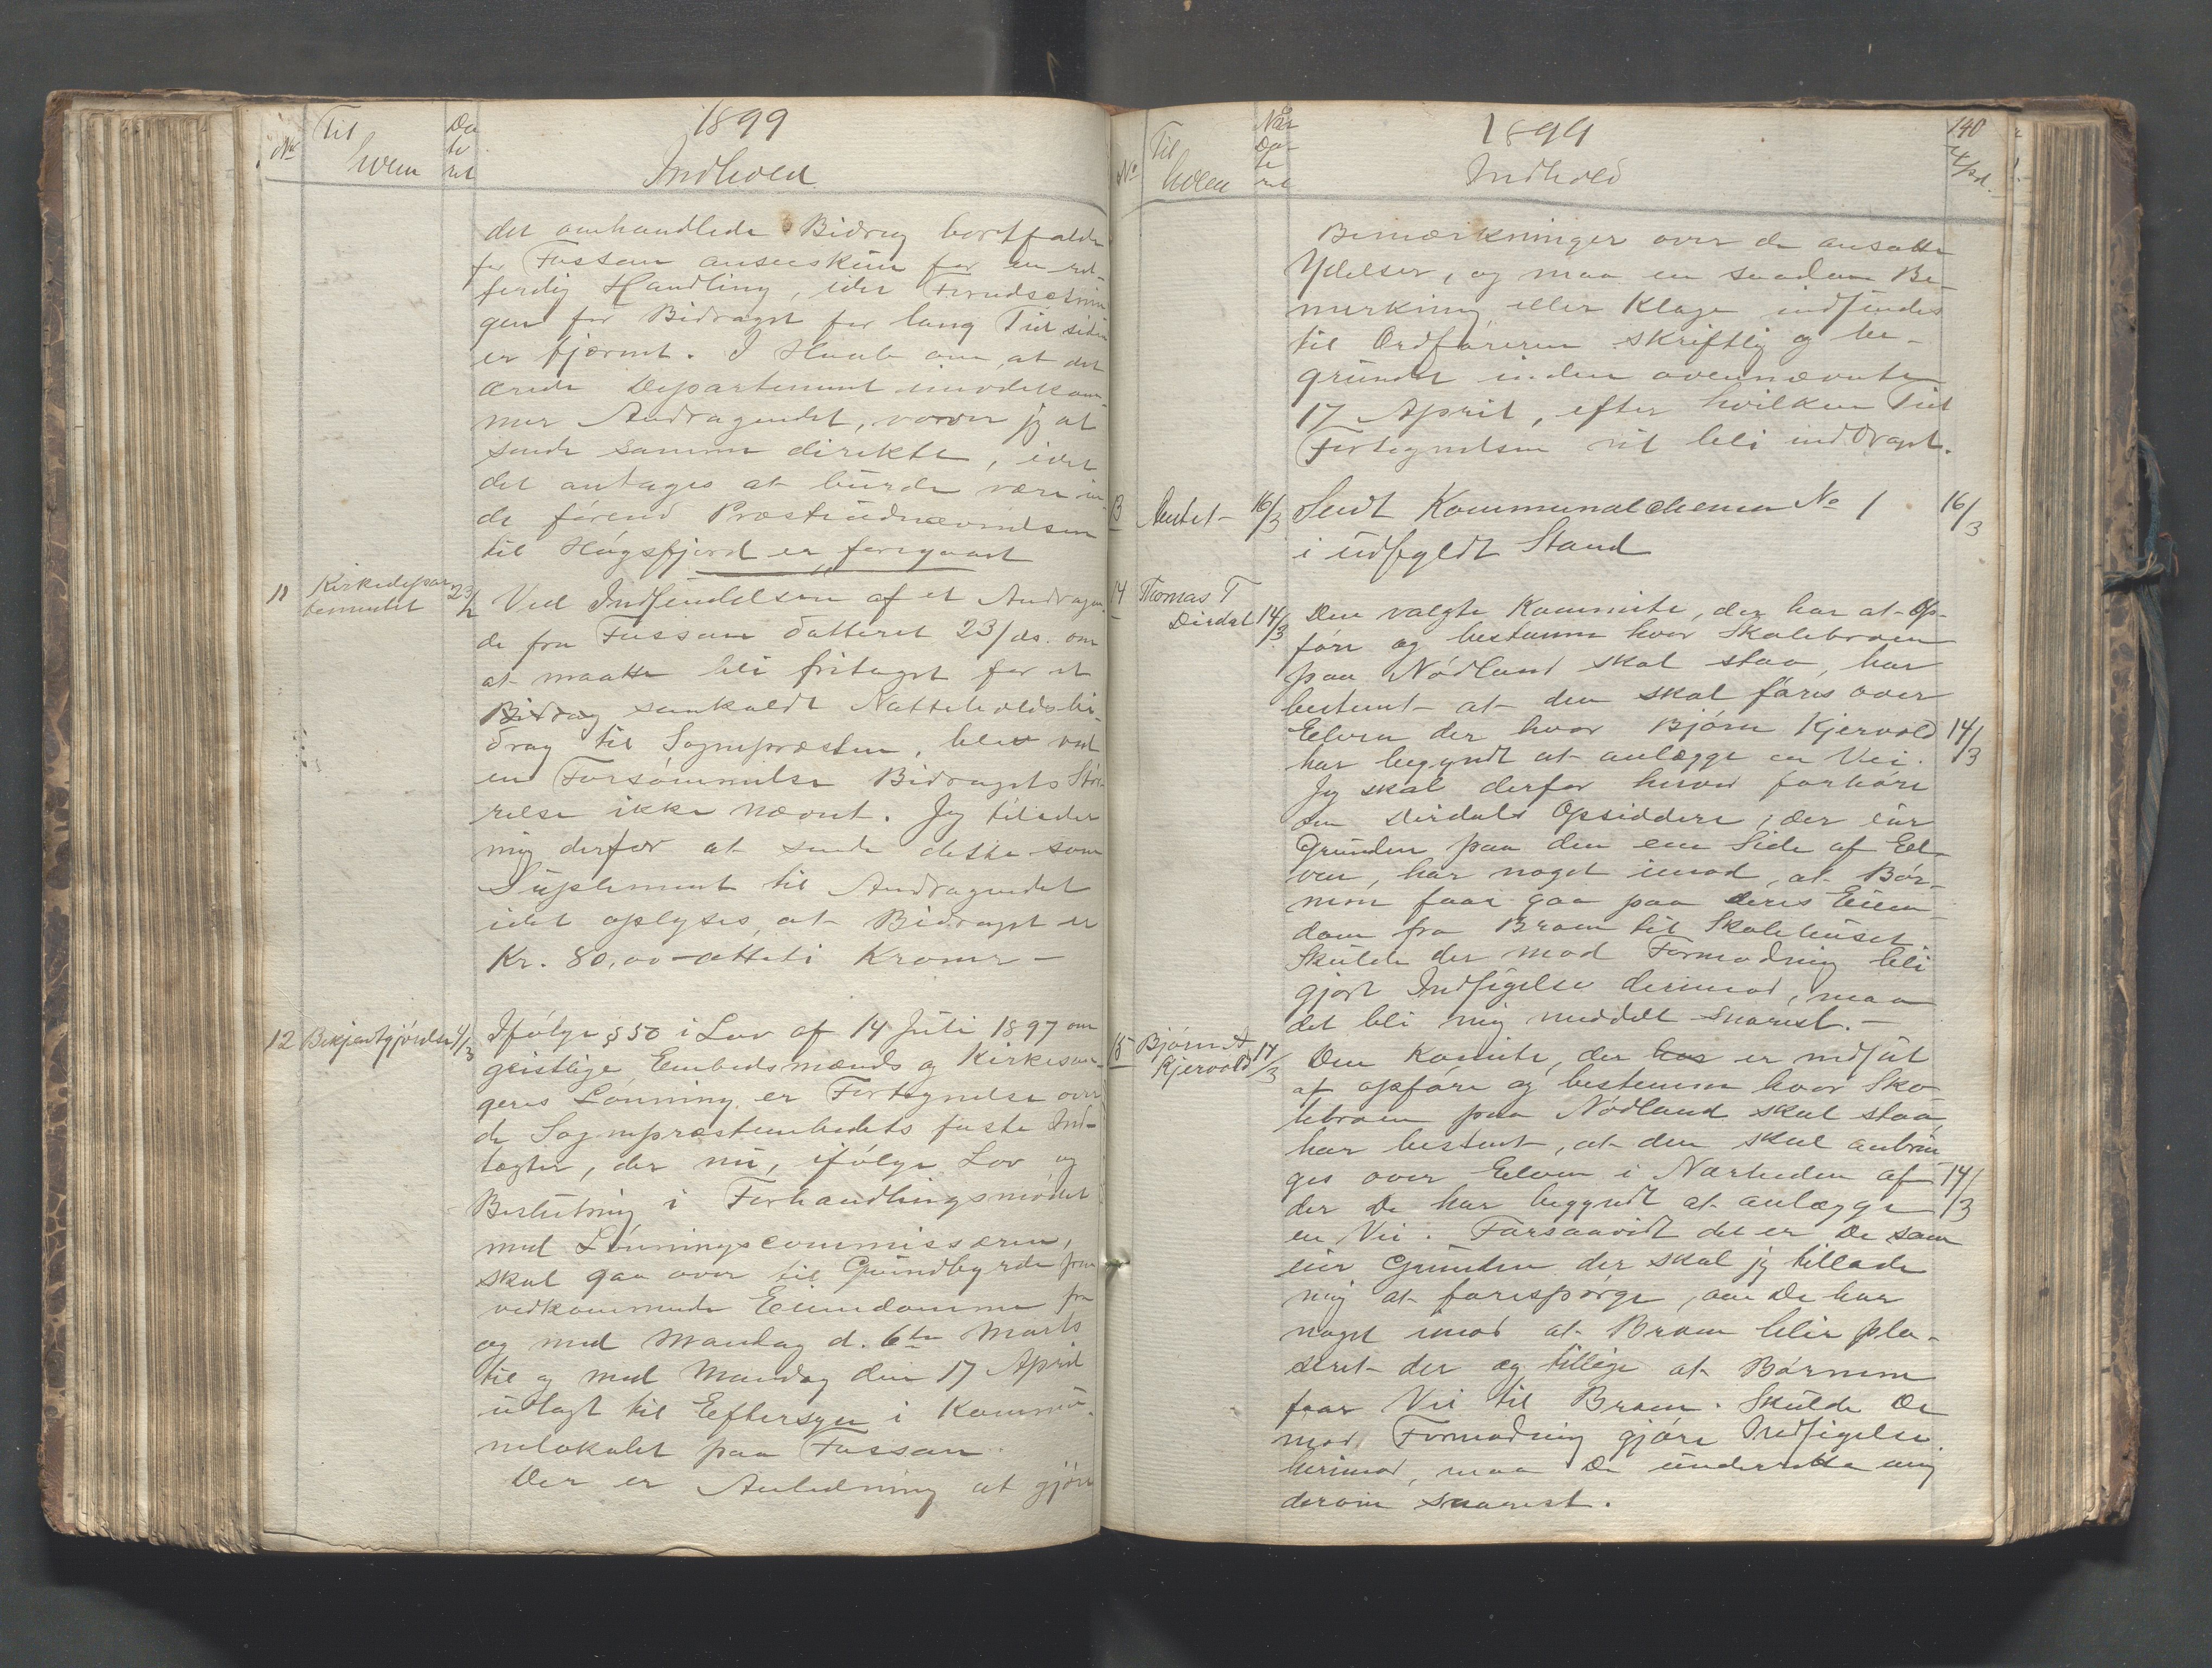 No Til hvem Dateret 1899 Indhold
det omhandlede Bidrag bortfalde
for Fossan ansees kun for en ret-
ferdig Handling, idet Forudsætnin
gen for Bidraget for lang Tid siden
er fjærnet. I Haab om, at det
ærede Departement imødekom-
mer Andragendet, vover jeg at
sende samme direkte, idet
det antages at burde være in
de førend Præsteudnævnelsen
til Høgsfjord er foregaaet
11 Kirkedepar
tementet 23/2 Ved Indsendelsen af et Andragen
de fra Fossan datteret 23/ ds. om
at maatte bli fritaget for et
Bidrag saakaldt Natteholdsbi-
drag til Sognepræsten, blev ved
en Forsømmelse Bidragets Stør-
relse ikke nævnt. Jeg tillader
mig derfor at sende dette som
Suplement til Andragendet
idet oplyses, at Bidraget er
Kr. 80,00 - otteti Kroner -
12 Bekjendtgjørelse 4/3 Ifølge § 50 i Lov af 14 Juli 1897 om
geistlige Embedsmænds og Kirkesan-
geres Lønning er Fortegnelse over
de Sognepræstembedets faste Ind-
tægter, der nu, ifølge Lov og
Beslutning i Forhandlingsmødet
med Lønningscommissæren,
skal gaa over til Grundbyrde paa
vedkommende Eiendomme fra
og med Mandag d. 6te Marts
til og med Mandag den 17 April
udlagt til Eftersyn i Kommu-
nelokalet paa Fossan.
Der er Anledning at gjøre
No Til hvem Naar Dateret 1899 Indhold 140
Bemærkninger over de ansatte
Ydelser, og maa en saadan Be-
merkning eller Klage indsendes
til Ordføreren skriftlig og be-
grundet inden ovennævnte
17 April, efter hvilken Tid
Fortegnelsen vil bli inddraget.
13 Amtet - 16/3 Sendt Kommunalskema No 1 16/3
i udfyldt Stand
14 Thomas T
Dirdal 14/3 Den valgte Kommite, der har at op-
føre og bestemme hvor Skolebroen
paa Nødland skal staa, har
bestemt at den skal føres over
Elven der hvor Bjørn Kjervold 14/3
har begyndt at anlægge en Vei.
Jeg skal derfor herved forhøre
om Dirdals Opsiddere, der eier
Grunden paa den ene Side af El-
ven, har noget imod, at Bør-
nene faar gaa paa deres Eien-
dom fra Broen til Skolehuset.
Skulde der mod Formodning bli
gjort Indsigelse derimod, maa
det bli mig meddelt snarest. -
15 Bjørn A
Kjervold 14/3 Den Komite, der har er nedsat
at opføre og bestemme hvor Sko-
lebroen paa Nødland skal staa,
har bestemt, at den skal anbrin
ges over Elven i Nærheden af 14/3
der De har begyndt at anlægge
en Vei. Forsaavidt det er De som
eier Grunden der skal jeg tillade
mig at forespørge, om De har
noget imod at Broen blir pla-
seret der og tillige at Børnene
faar Vei til Broen. Skulde De
mod Formodning gjøre Indsigelse
herimod, maa De underrette mig
derom snarest.